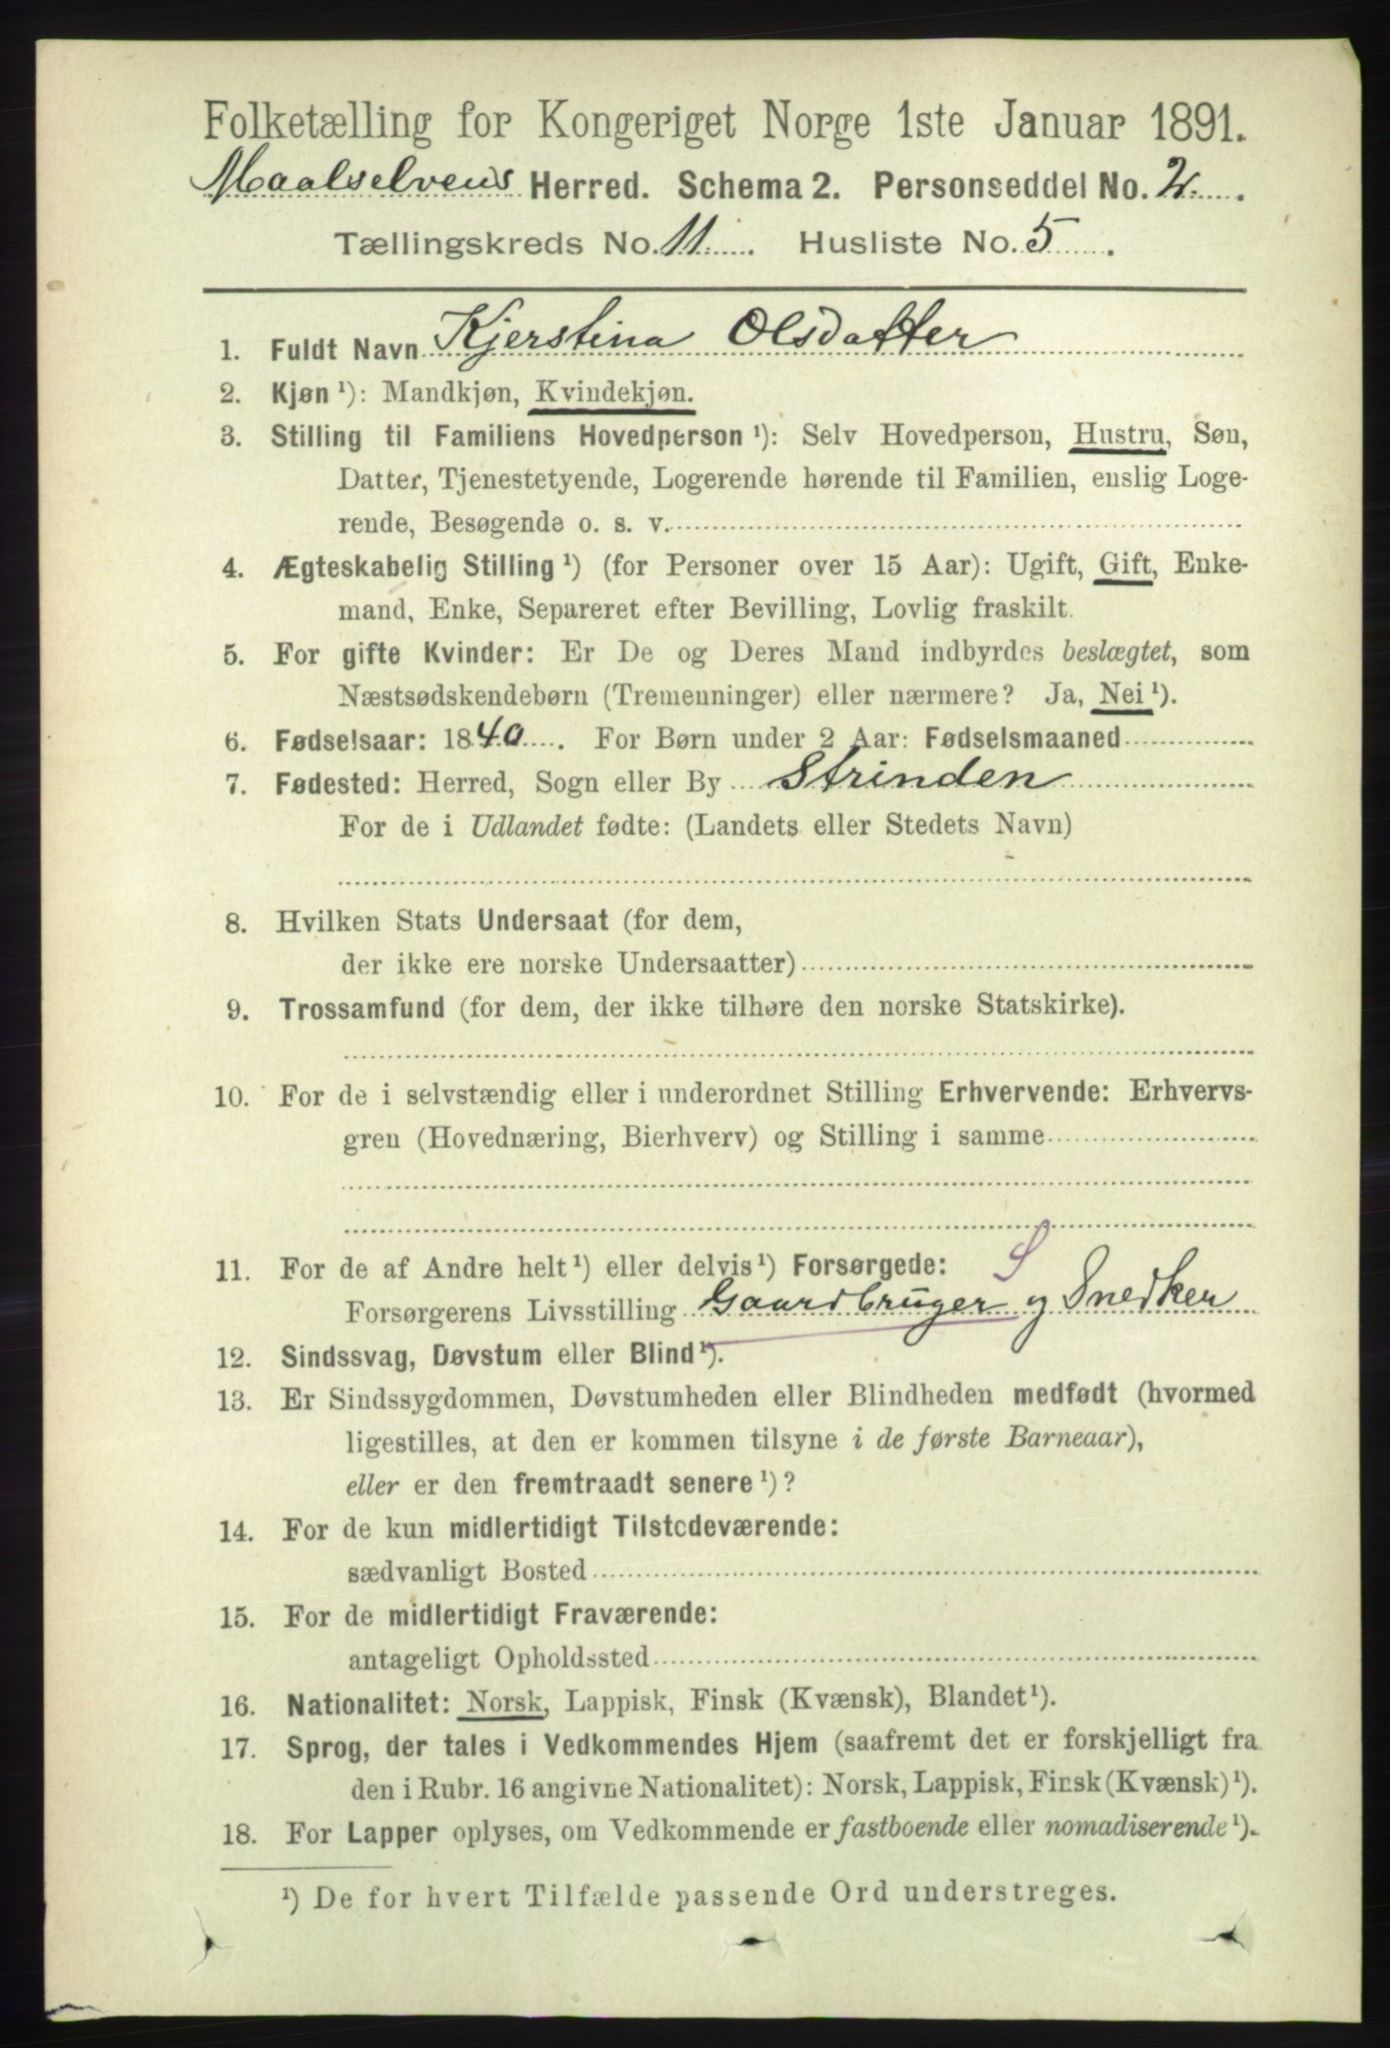 Folketælling for Kongeriget Norge 1ste Januar 1891.
Maalselvens Herred. Schema 2. Personseddel No. 2.
Tællingskreds No. 11. Husliste No. 5.
1. Fuldt Navn Kjerstina Olsdatter
2. Kjøn ¹): Mandkjøn, Kvindekjøn.
3. Stilling til Familiens Hovedperson ¹): Selv Hovedperson, Hustru, Søn,
Datter, Tjenestetyende, Logerende hørende til Familien, enslig Loge-
rende, Besøgende o. s. v.
4. Ægteskabelig Stilling ¹) (for Personer over 15 Aar): Ugift, Gift, Enke-
mand, Enke, Separeret efter Bevilling, Lovlig fraskilt.
5. For gifte Kvinder: Er De og Deres Mand indbyrdes beslægtet, som
Næstsødskendebørn (Tremenninger) eller nærmere? Ja, Nei ¹).
6. Fødselsaar: 1840. For Børn under 2 Aar: Fødselsmaaned
7. Fødested: Herred, Sogn eller By Strinden
For de i Udlandet fødte: (Landets eller Stedets Navn)
8. Hvilken Stats Undersaat (for dem,
der ikke ere norske Undersaatter)
9. Trossamfund (for dem, der ikke tilhøre den norske Statskirke).
10. For de i selvstændig eller i underordnet Stilling Erhvervende: Erhvervs-
gren (Hovednæring, Bierhverv) og Stilling i samme
11. For de af Andre helt ¹) eller delvis ¹) Forsørgede: S
Forsørgerens Livsstilling Gaardbruger og Snedker
12. Sindssvag, Døvstum eller Blind ¹).
13. Er Sindssygdommen, Døvstumheden eller Blindheden medfødt (hvormed
ligestilles, at den er kommen tilsyne i de første Barneaar),
eller er den fremtraadt senere ¹)?
14. For de kun midlertidigt Tilstedeværende:
sædvanligt Bosted
15. For de midlertidigt Fraværende:
antageligt Opholdssted
16. Nationalitet: Norsk, Lappisk, Finsk (Kvænsk), Blandet ¹).
17. Sprog, der tales i Vedkommendes Hjem (saafremt det er forskjelligt fra
den i Rubr. 16 angivne Nationalitet): Norsk, Lappisk, Finsk (Kvænsk) ¹).
18. For Lapper oplyses, om Vedkommende er fastboende eller nomadiserende ¹).
¹) De for hvert Tilfælde passende Ord understreges.